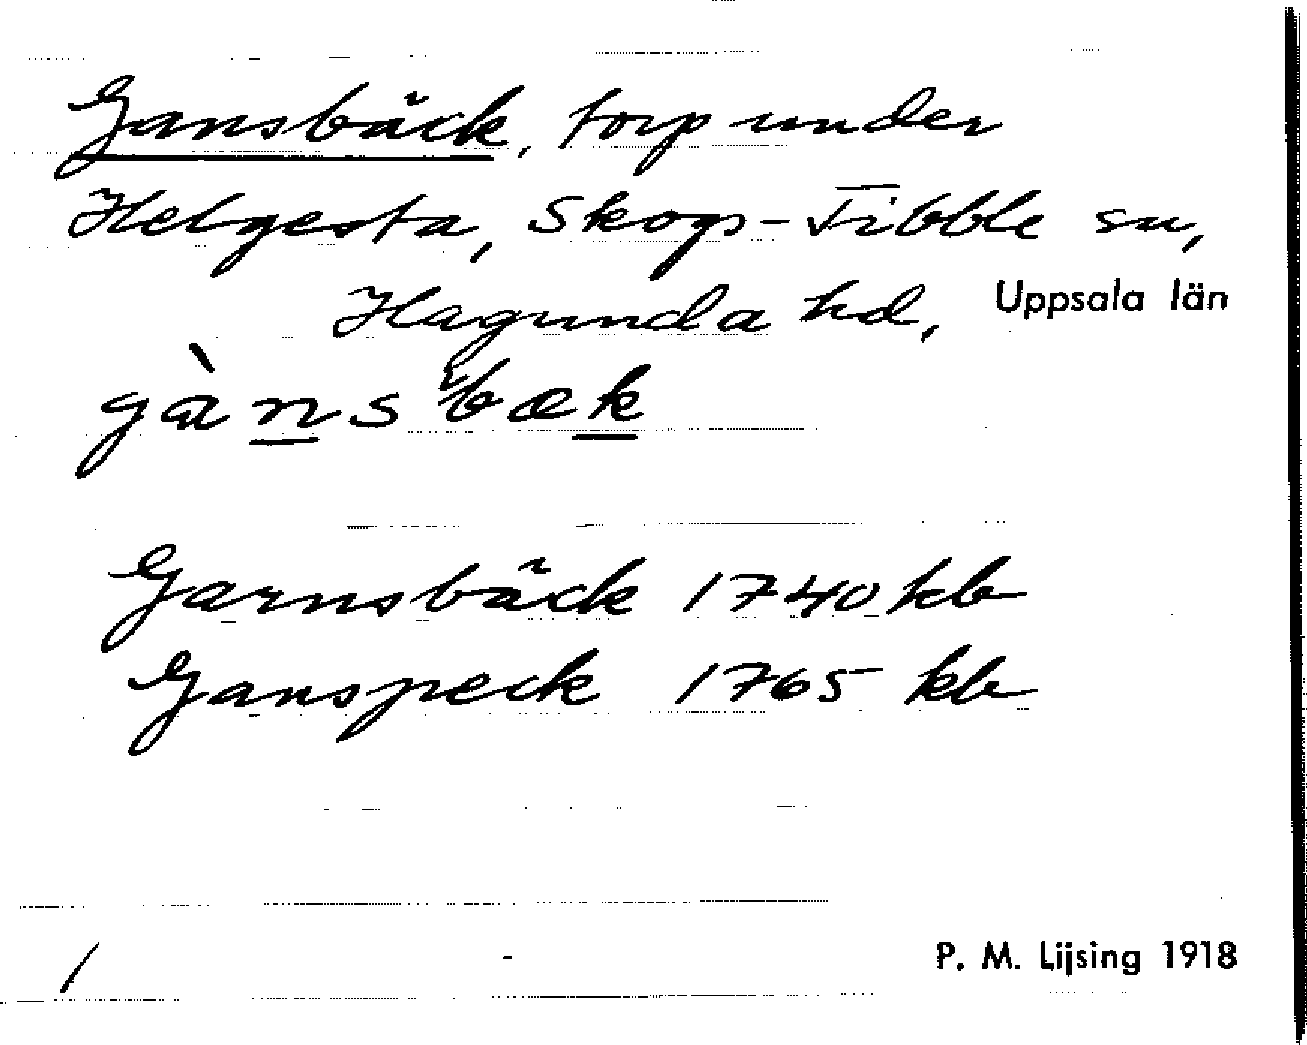 Gansbäck, torp under
Helgesta, Skogs-Tibble sn,
Hagunda hd, Uppsala län
gànsbæk
Garnsbäck 1740 kb
Ganspeck 1765 kb
/
P. M. Lijsing 1918